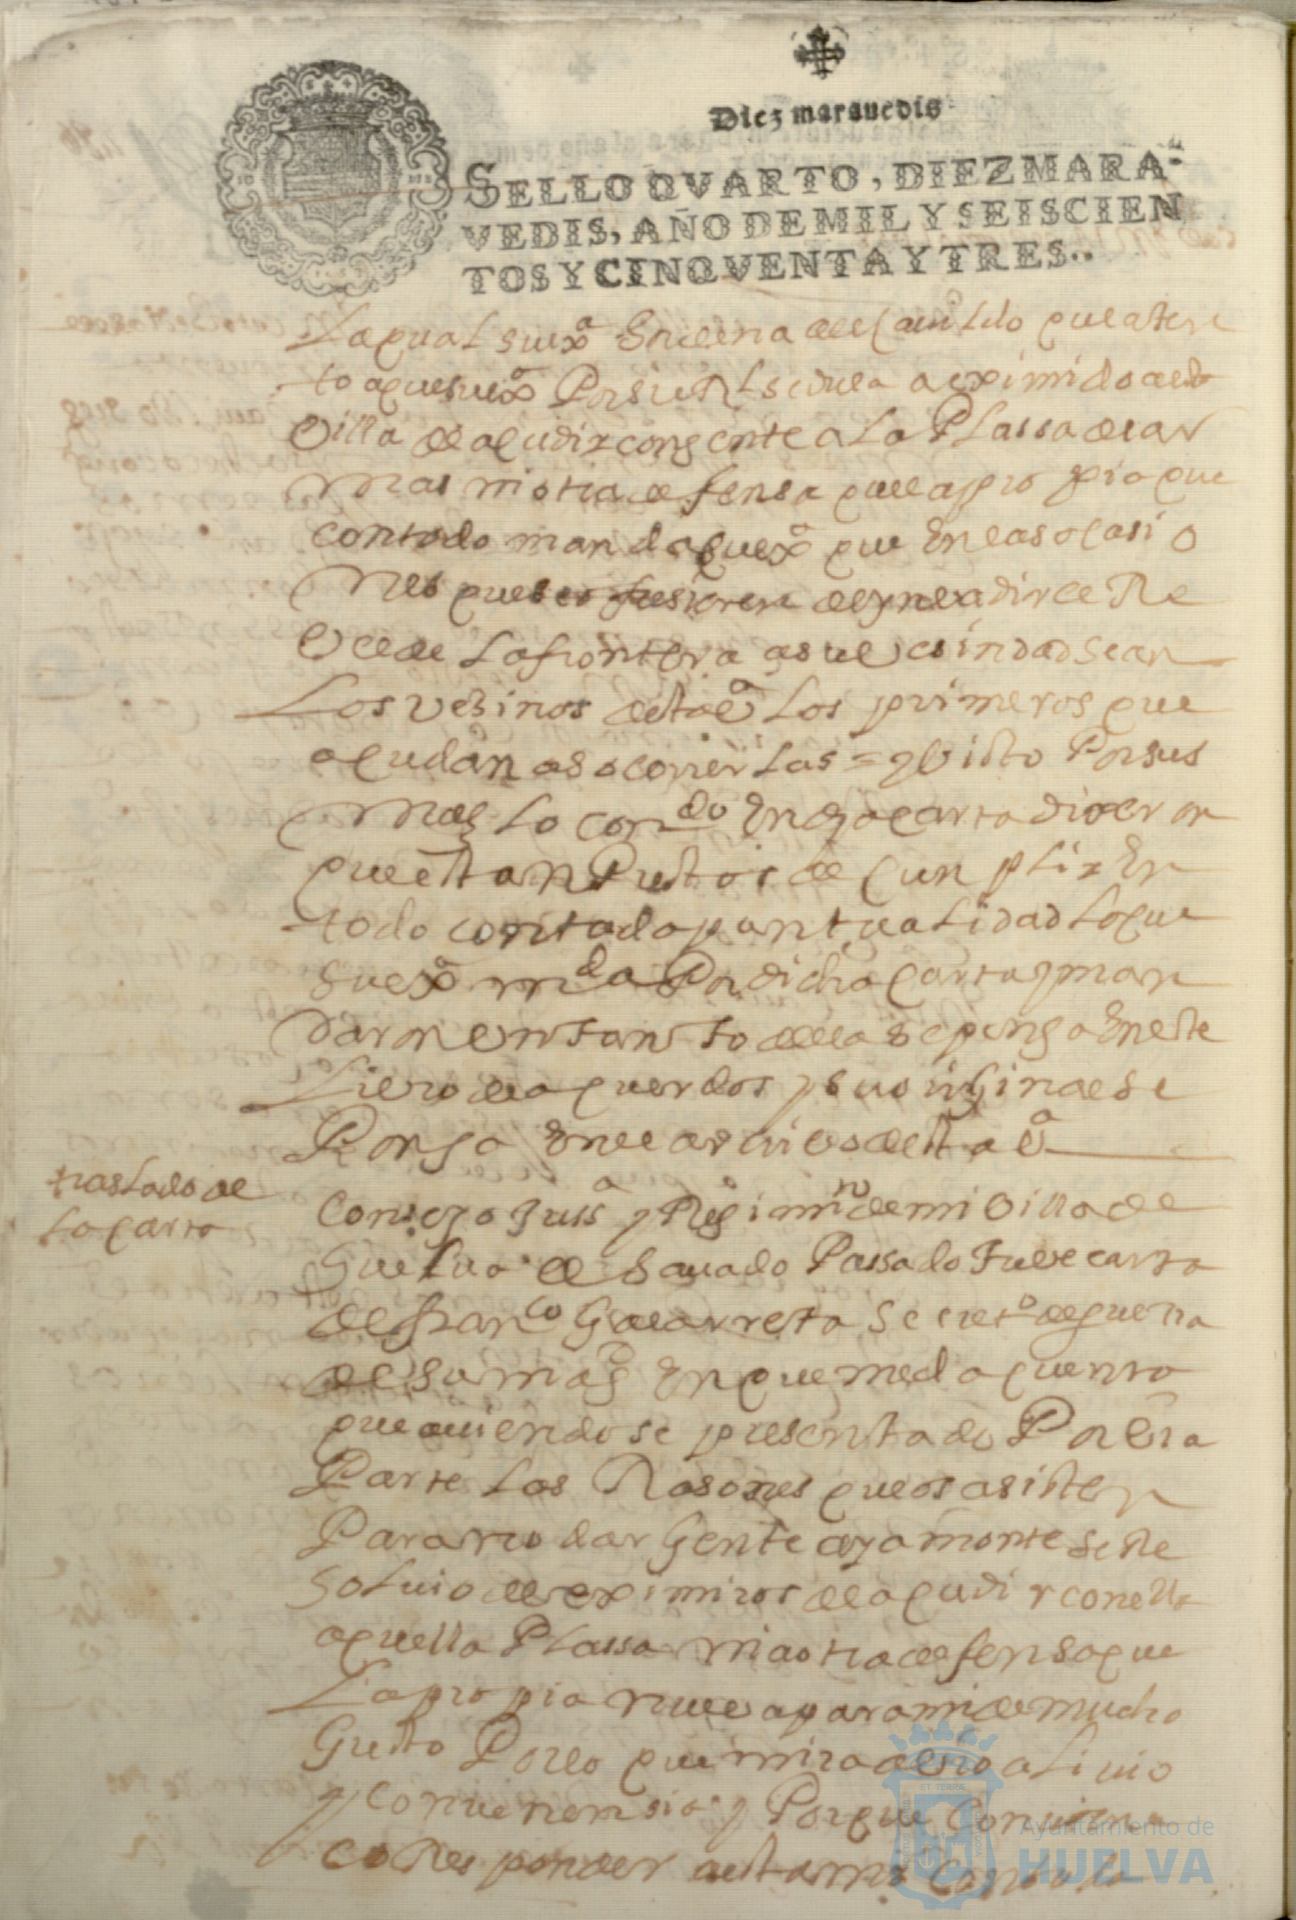 Diez marauedis
SELLO QVARTO, DIEZ MARA-
VEDIS, AÑO DE MIL Y SEISCIEN
TOS Y CINQVENTA Y TRES..
La qual su exª
to a que su exª Por su Rl sedula a eximido a esta
Villa de acudir con gente a La Plassa de ar
mas ni otra defensa que a propio que
con todo manda su exª que En las ocasio
nes que
de La frontera a su vesindad sean
Los vezinos desta vª Los primeros que
acudan a socorrerlas = y visto Por sus
mds Lo contdo En dha carta dixeron
que estan Prestos de cunplir En
todo con toda puntualidad Lo que
su exª mda Por dicha carta y man
daron tanto della se ponga En este
Libro de acuerdos y su original se
Ponga En el archibo desta vª
traslado de
la carta
Consejo Jussª y Regimnto de mi Villa de
Guelua el Sauado Passado Tube carta
de Franco Galarreta Secretº de guerra
de su magd En que me da quenta
que auiendose presentado Por vra
Parte Las Rasones que os asisten
Para no dar Gente a yamonte se Re
soluio de eximiros de acudir con ella
a aquella Plassa ni a otra defensa que
La propia nueba para mi de mucho
Gusto Por lo que mira a vro aliuio
y conueniensia y Porque Conuiene
coRes ponder a esta
ET TERRÆ
Ayuntamiento de
HUELVA